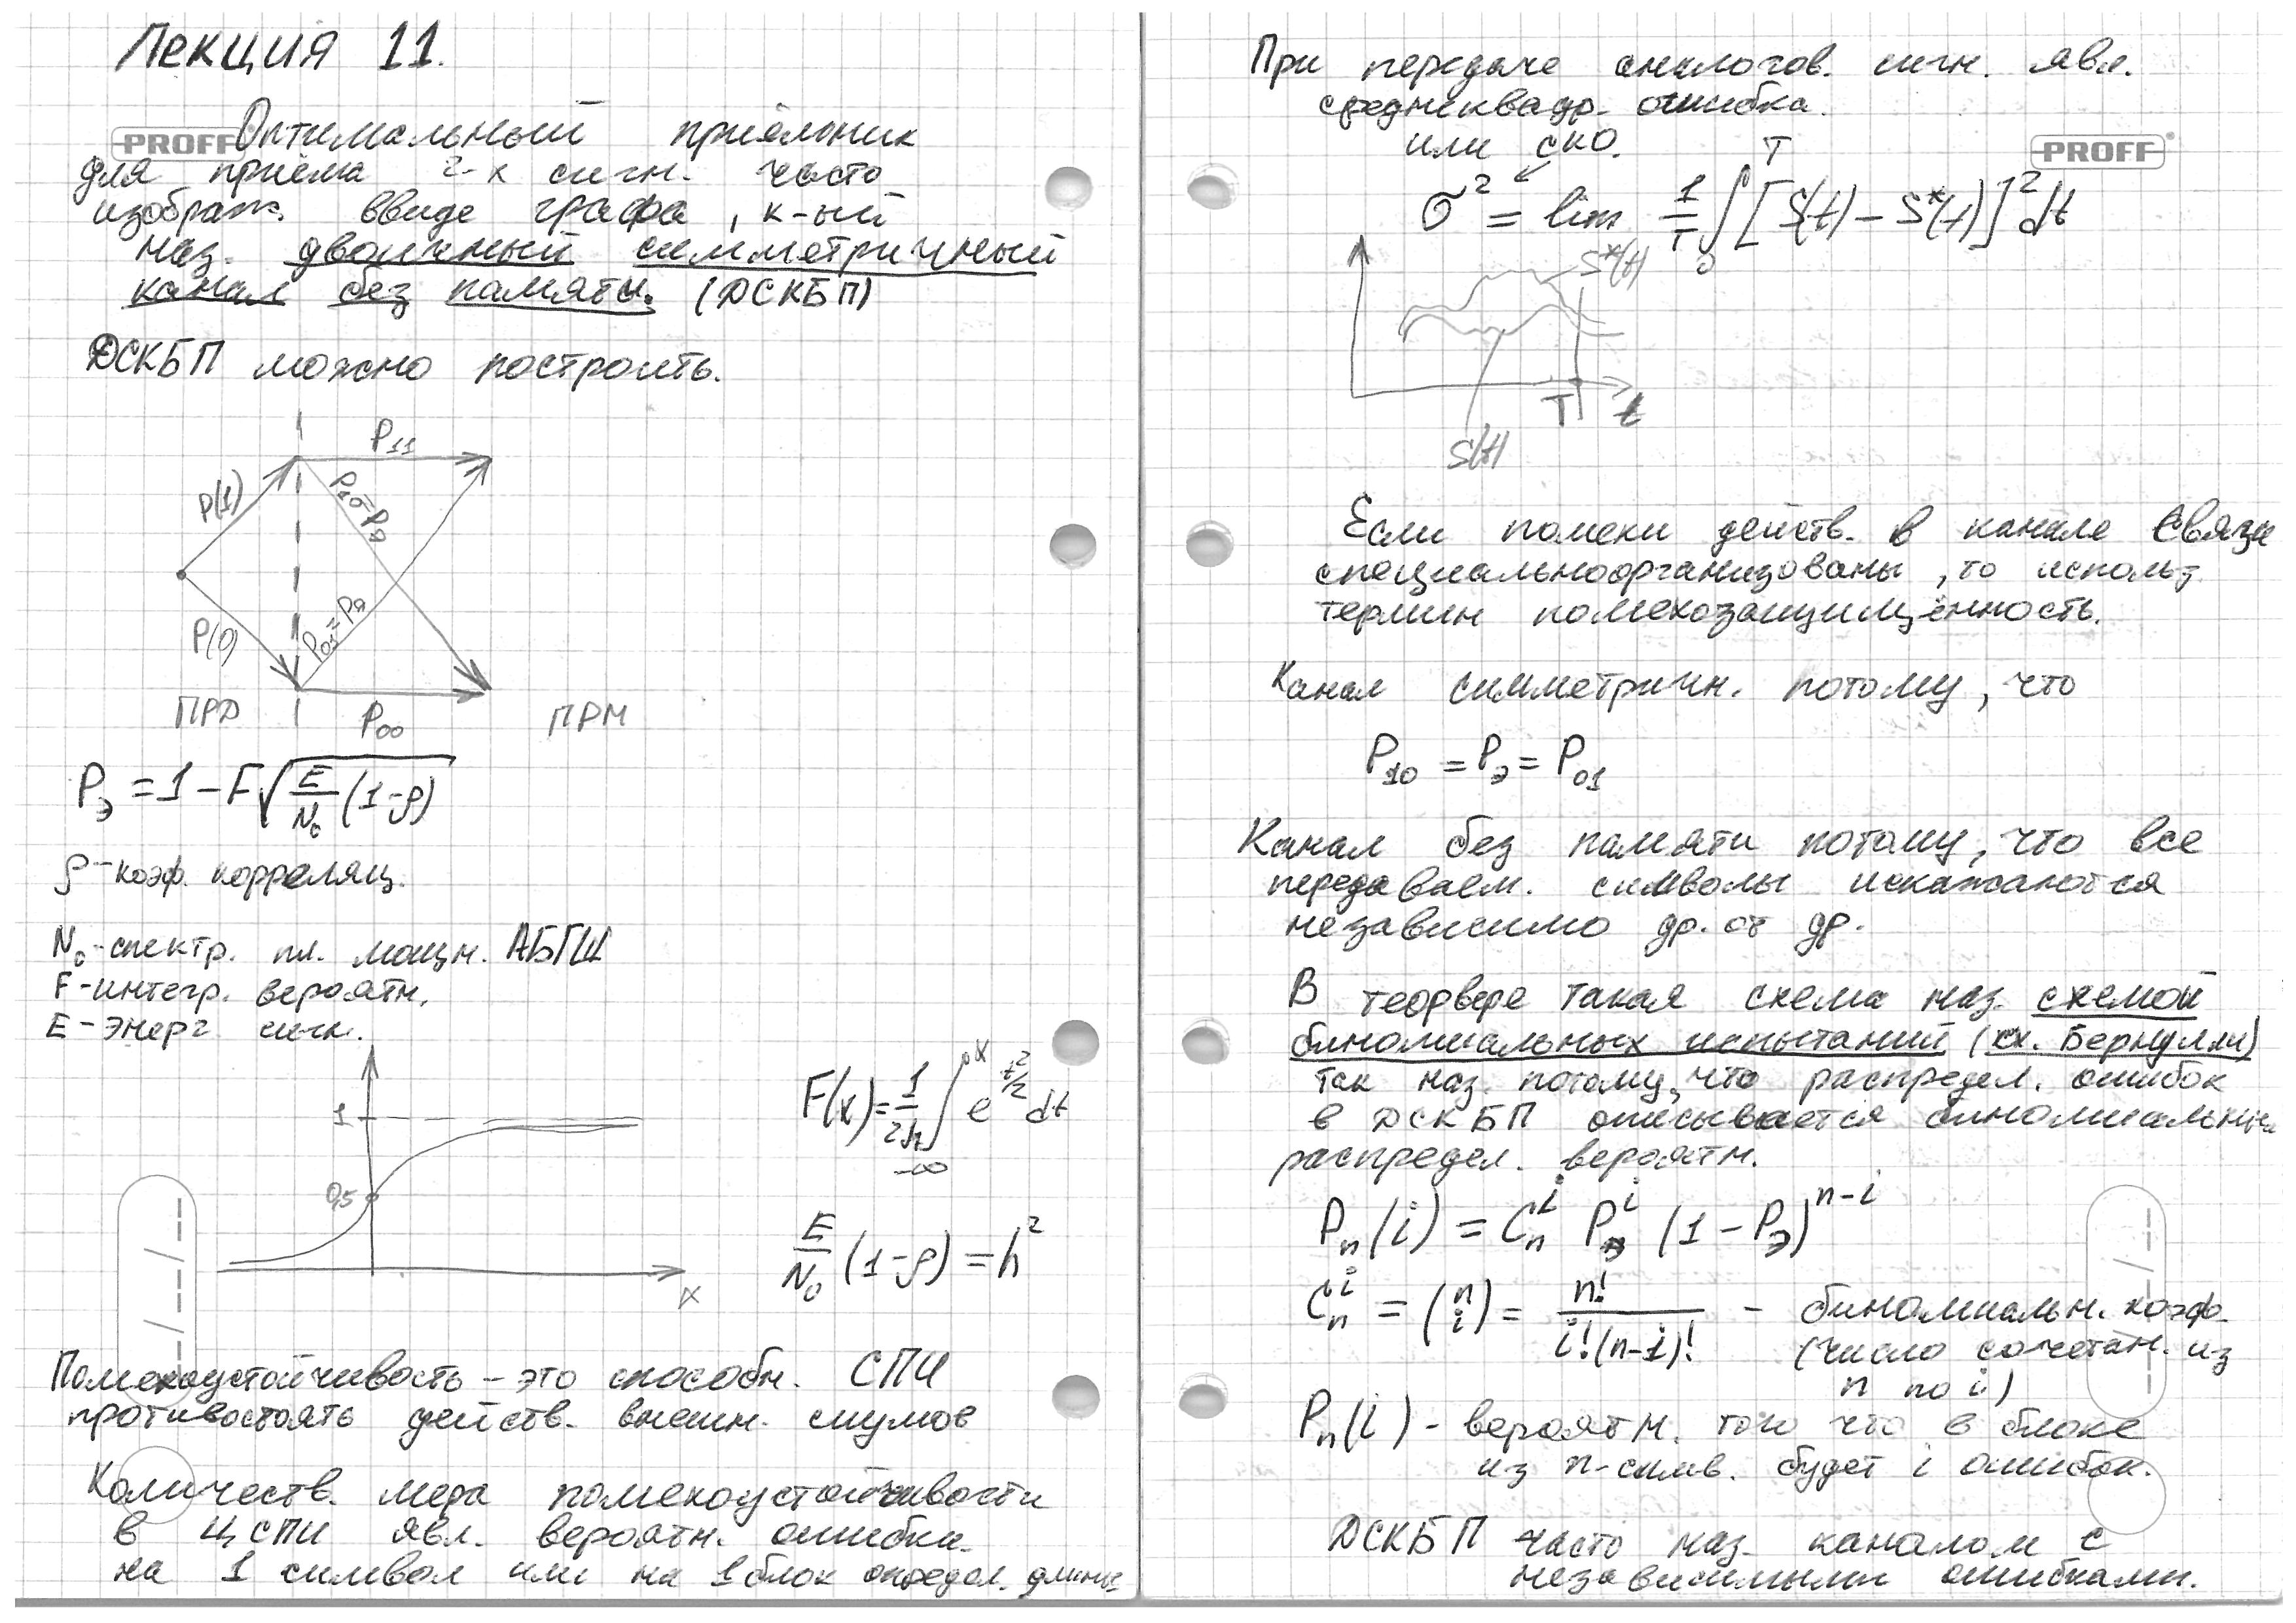 Лекция 11.
PROFF
Оптимальный приёмник
для приёма 2-х сигн. часто
изображ. ввиде графа, к-ый
наз. двоичный симметричный
канал без памяти. (ДСКБП)
ДСКБП можно построить.
P11
P(1)
P10=Pэ
P01=Pэ
P(0)
ПРД
P00
ПРМ
Pэ = 1 - F√(E/N0 (1-ρ))
ρ - коэф. корреляц.
N0 - спектр. пл. мощн. АБГШ
F - интегр. вероятн.
E - энерг сигн.
1
0,5
x
F(x) = 1/2π ∫_{-∞}^{x} e^{t²/2} dt
E/N0 (1-ρ) = h²
Помехоустойчивость - это способн. СПИ
противостоять действ. внешн. шумов
Количеств. мера помехоустойчивости
в ЦСПИ явл. вероятн. ошибки
на 1 символ или на 1 блок определ. длины
При передаче аналогов. сигн. явл.
среднеквадр. ошибка.
или СКО.
PROFF
σ² = lim 1/T ∫_0^T [S(t) - S*(t)]² dt
S*(t)
T t
S(t)
Если помехи действ. в канале связи
специальноорганизованы, то использ.
термин помехозащищённость.
Канал симметричн. потому, что
P10 = Pэ = P01
Канал без памяти потому, что все
передаваем. символы искажаются
независимо др. от др.
В теорвере такая схема наз. схемой
биномиальных испытаний (сх. Бернулли)
так наз. потому, что распредел. ошибок
в ДСКБП описывается биномиальным
распредел. вероятн.
Pn(i) = C_n^i Pэ^i (1-Pэ)^{n-i}
C_n^i = (n i) = n!/i!(n-1)! - биномиальн. коэф.
(число сочетан. из
n по i)
Pn(i) - вероятн. того что в блоке
из n-симв. будет i ошибок.
ДСКБП часто наз. каналом с
независимыми ошибками.